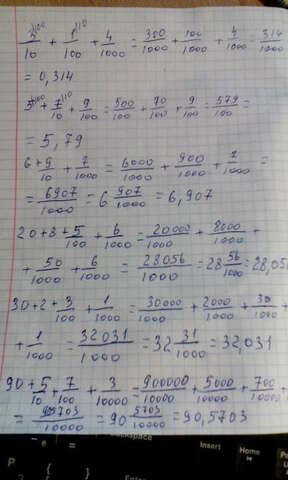 3/10 + 1/100 + 4/1000 = 300/1000 + 100/1000 + 4/1000 = 314/1000
= 0,314
5 + 7/10 + 9/100 = 500/100 + 70/100 + 9/100 = 579/100 =
= 5,79
6 + 9/10 + 7/1000 = 6000/1000 + 900/1000 + 7/1000 =
= 6907/1000 = 6 907/1000 = 6,907
20 + 8 + 5/100 + 6/1000 = 20000/1000 + 8000/1000 +
+ 50/1000 + 6/1000 = 28056/1000 = 28 56/1000 = 28,05
30 + 2 + 3/100 + 1/1000 = 30000/1000 + 2000/1000 + 30/100 +
+ 1/1000 = 32031/1000 = 32 31/1000 = 32,031
90 + 5/10 + 7/100 + 3/10000 = 900000/10000 + 5000/10000 + 700/1000 +
= 905703/10000 = 90 5703/10000 = 90,5703
Backspace
Insert
Home
P
{
}